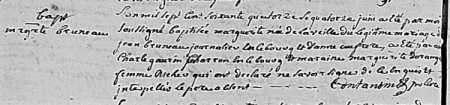 Bapt
mgrete bruneau
L'an mil sept Cent Soixante quatorze le quatorze juin a été par moi
soussigné baptisée marguerite née de la veille du légitime mariage de
jean bruneau journalier en le bourg et Danne
Charle gaurin en le bourg et maraine marguerite Dorange
femme qui ont declaré ne savoir signe de le enquis et
interpellés le pere absent